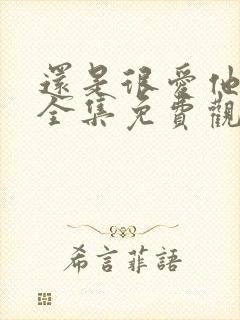 還是很愛他
全集免費觀
希言菲語